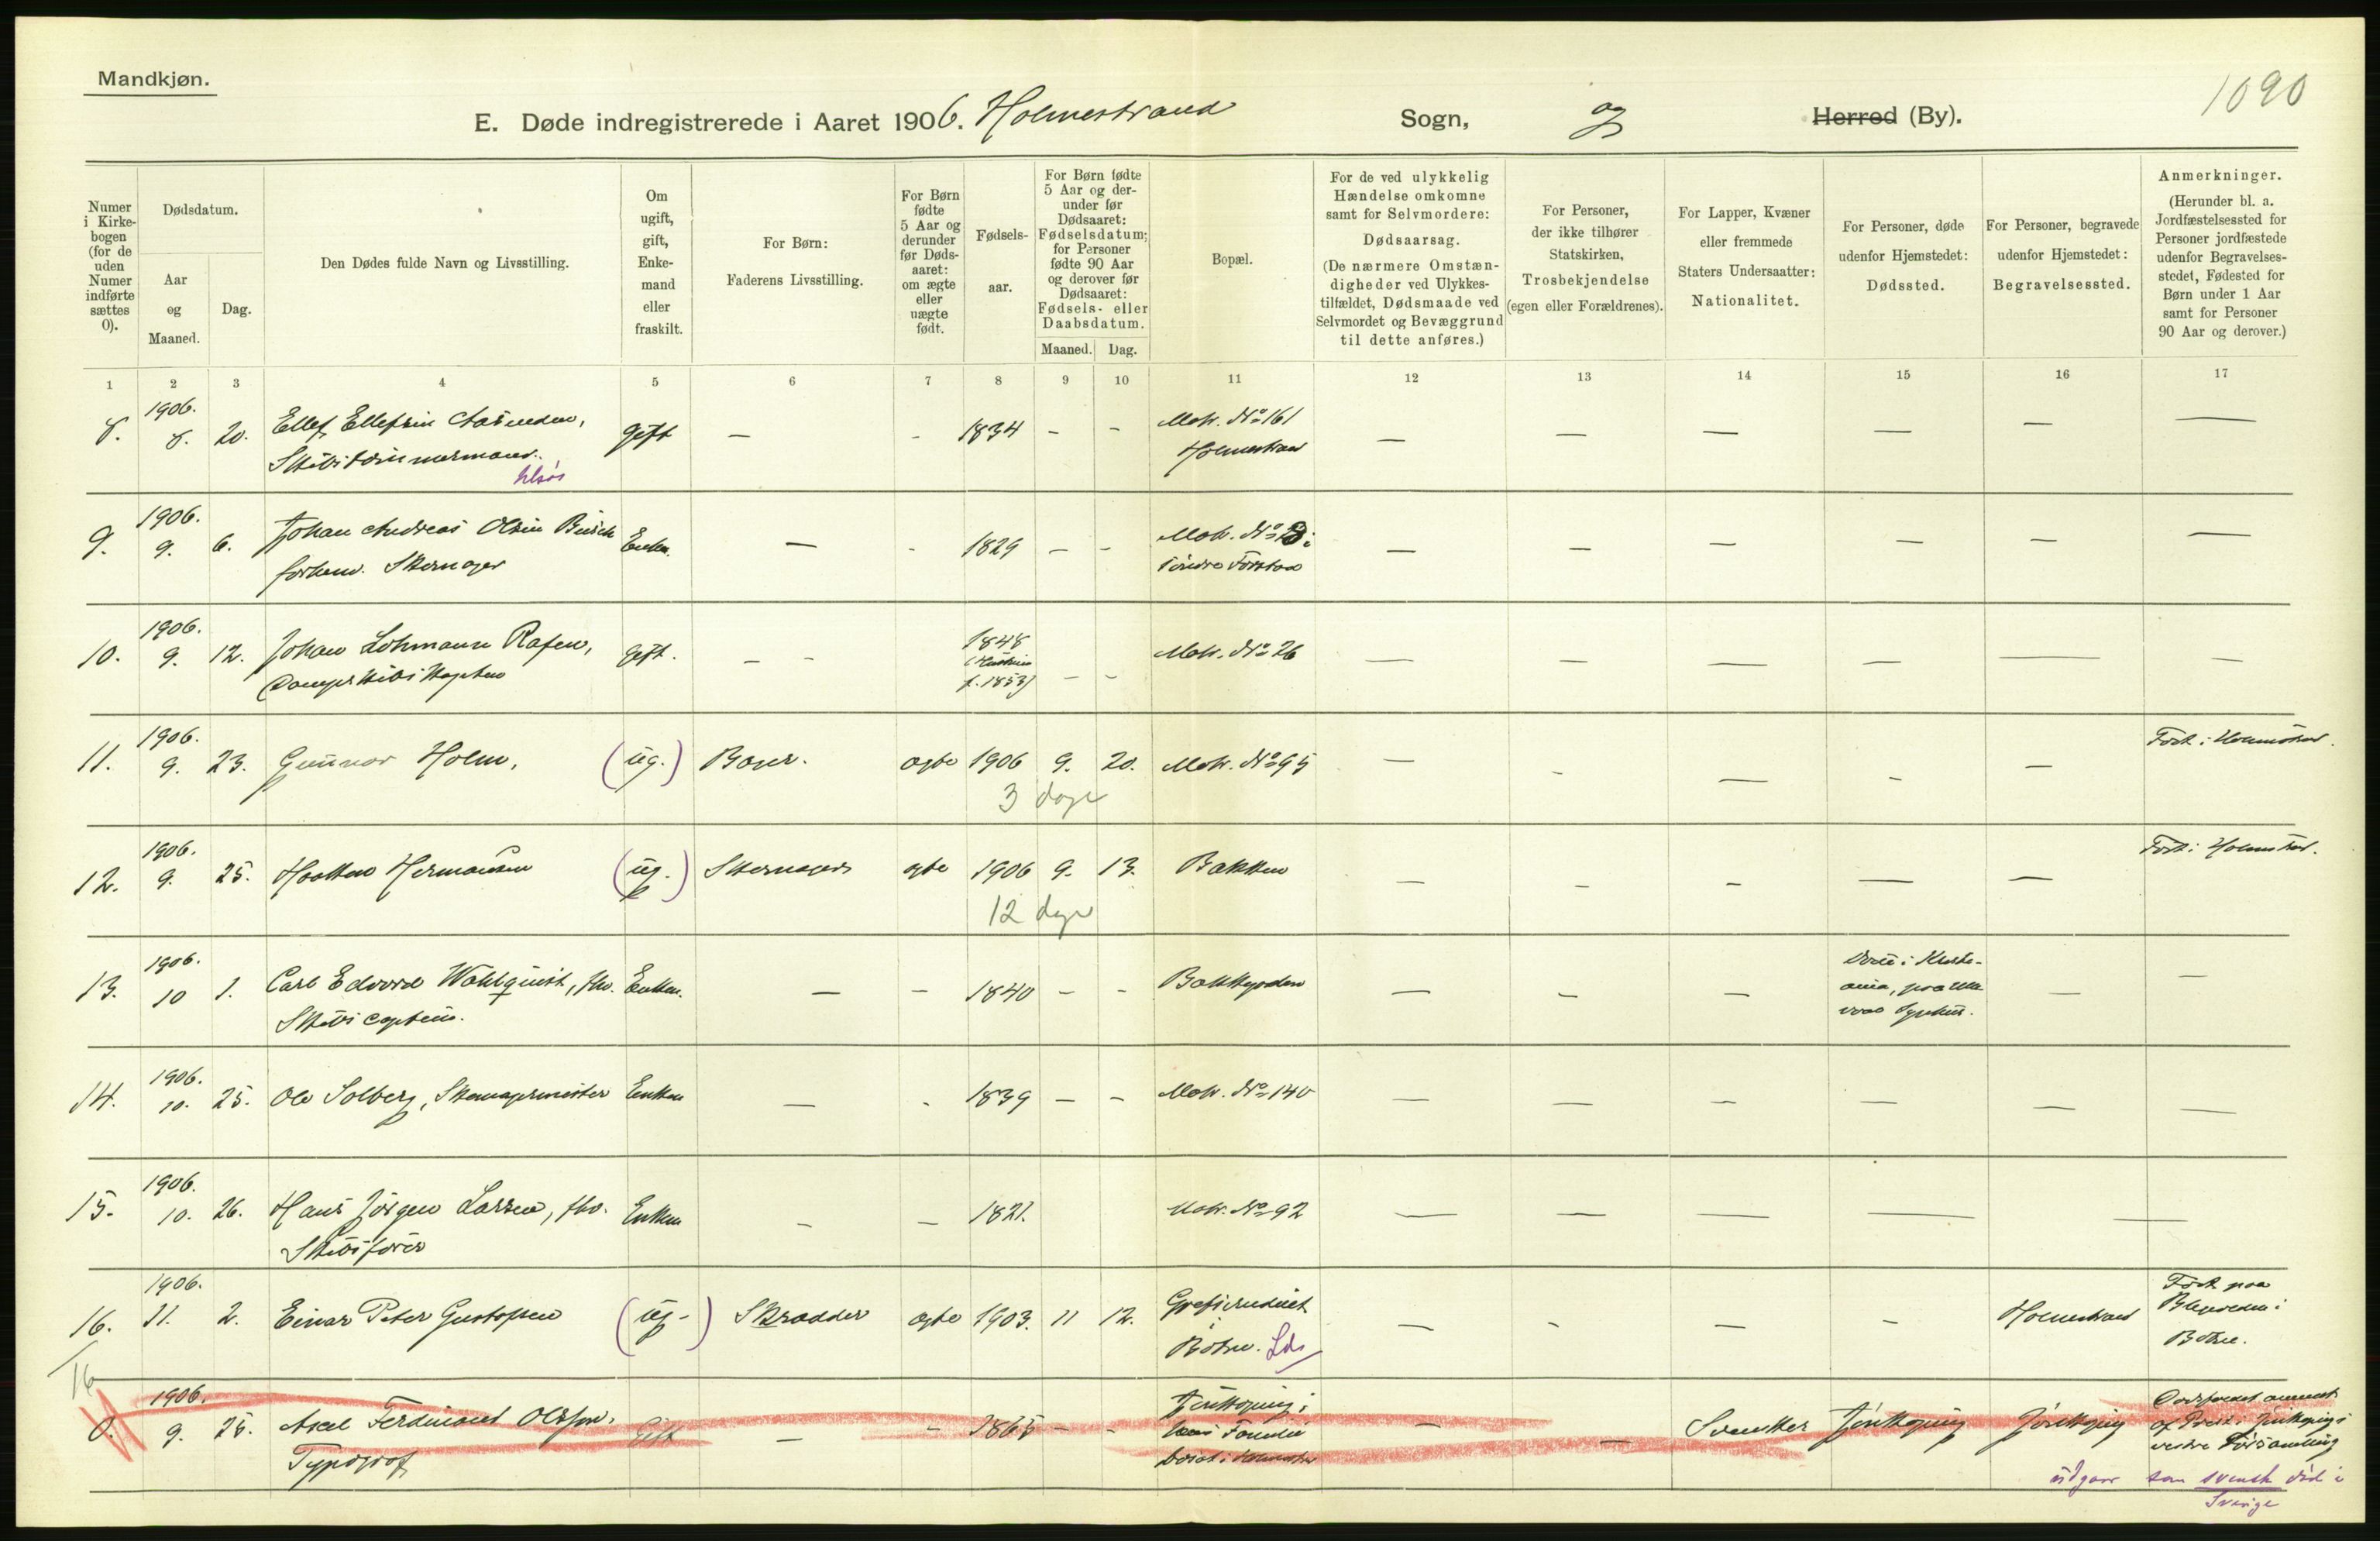 Mandkjøn.
1090
E. Døde indregistrerede i Aaret 1906. Holmestrand Sogn, og Herred (By).
Numer i Kirkebogen (for de uden Numer indførte sættes 0).
Dødsdatum.
Aar og Maaned.
Dag.
Den Dødes fulde Navn og Livsstilling.
Om ugift, gift, Enkemand eller fraskilt.
For Børn: Faderens Livsstilling.
For Børn fødte 5 Aar og derunder før Dødsaaret: om ægte eller uægte født.
Fødselsaar.
For Børn fødte 5 Aar og derunder før Dødsaaret: Fødselsdatum; for Personer fødte 90 Aar og derover før Dødsaaret: Fødsels- eller Daabsdatum.
Maaned. Dag.
Bopæl.
For de ved ulykkelig Hændelse omkomne samt for Selvmordere: Dødsaarsag. (De nærmere Omstændigheder ved Ulykkestilfældet, Dødsmaade ved Selvmordet og Bevæggrund til dette anføres.)
For Personer, der ikke tilhører Statskirken, Trosbekjendelse (egen eller Forældrenes).
For Lapper, Kvæner eller fremmede Staters Undersaatter: Nationalitet.
For Personer, døde udenfor Hjemstedet: Dødssted.
For Personer, begravede udenfor Hjemstedet: Begravelsessted.
Anmerkninger. (Herunder bl. a. Jordfæstelsessted for Personer jordfæstede udenfor Begravelsesstedet, Fødested for Børn under 1 Aar samt for Personer 90 Aar og derover.)
1 2 3 4 5 6 7 8 9 10 11 12 13 14 15 16 17
8. 1906. 8. 20. Ellef Ellefsen
Skibstømmermand. gift — - 1834 - - Matr. No 161
Holmestrand — — — — — —
9. 1906. 9. 6. Johan Andreas Olsen Busch
forhenv. Skomager Enkem. — - 1829 - - Matr. No
Søndre — — — — — —
10. 1906. 9. 12. Johan Lohmann Rafen,
Dampskibskaptein gift. - - 1848
(Hustruen
f. 1853) - - Matr. No 26 — — — — — —
11. 1906. 9. 23. Gunnar Holm, (ug.) Bager. ægte 1906 9. 20. Matr. No 95 — - — - — Født i Holmestrand.
3 dage
12. 1906. 9. 25. Haakon Hermansen (ug.) Skomager ægte 1906 9. 13. Bakken — - - — — Født i Holmestrand.
12 dage
13. 1906. 10 1. Carl Edvard Wahlquist, fhv.
Skibscaptein. Enkem. — - 1840 - - — - — Døde i Kristiania, paa Ullevaal Sygehus. — —
14. 1906. 10. 25. Ole Solberg, Skomagermester Enkem — - 1839 — - Matr. No 140 — — - — — —
15. 1906. 10. 26. Hans Jørgen Larsen, fhv.
Skibsfører Enkem - — 1821. Matr. No 92 — — — — —
16. 1906. 11. 2. Einar Peter Gustafsen (ug-) Skrædder ægte 1903. 11 12.
i
Botne. Lds — - — - Holmestrand Født paa
i
Botne.
16
0. 1906. 9. 25. Axel Ferdinand Olsson.
Typograf Gift — - 1865 - - Jønkøping;
hans Familie
bosat i Holmestrand — — Svensker Jønkøping Jønkøping Dødsfaldet anmeldt
af Præst i Jønkøpings
vestre Församling
udgaar som svensk død i
Sverige